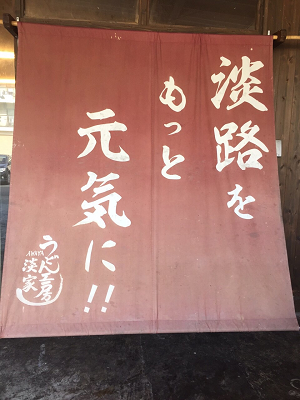 淡路を
もっと
元気に!!
うどん工房
AWAYA
淡家